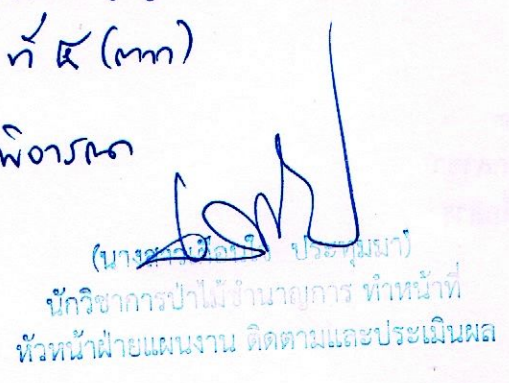 ที่ ๕ (ตาก)
พิจารณา
(นางสาวเตือนใจ ประทุมมา)
นักวิชาการป่าไม้ชำนาญการ ทำหน้าที่
หัวหน้าฝ่ายแผนงาน ติดตามและประเมินผล